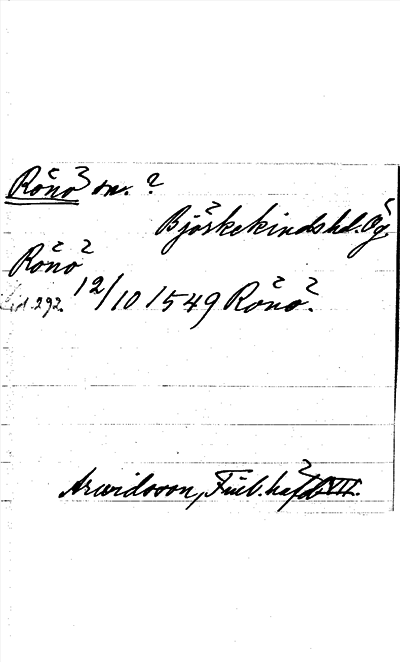 Rönö sn. ?
Björkekinds hd. Ög.
Rönö
sid. 292. 12/10 1549 Rönö.
Arwidsson, Finl. häfd. VII.